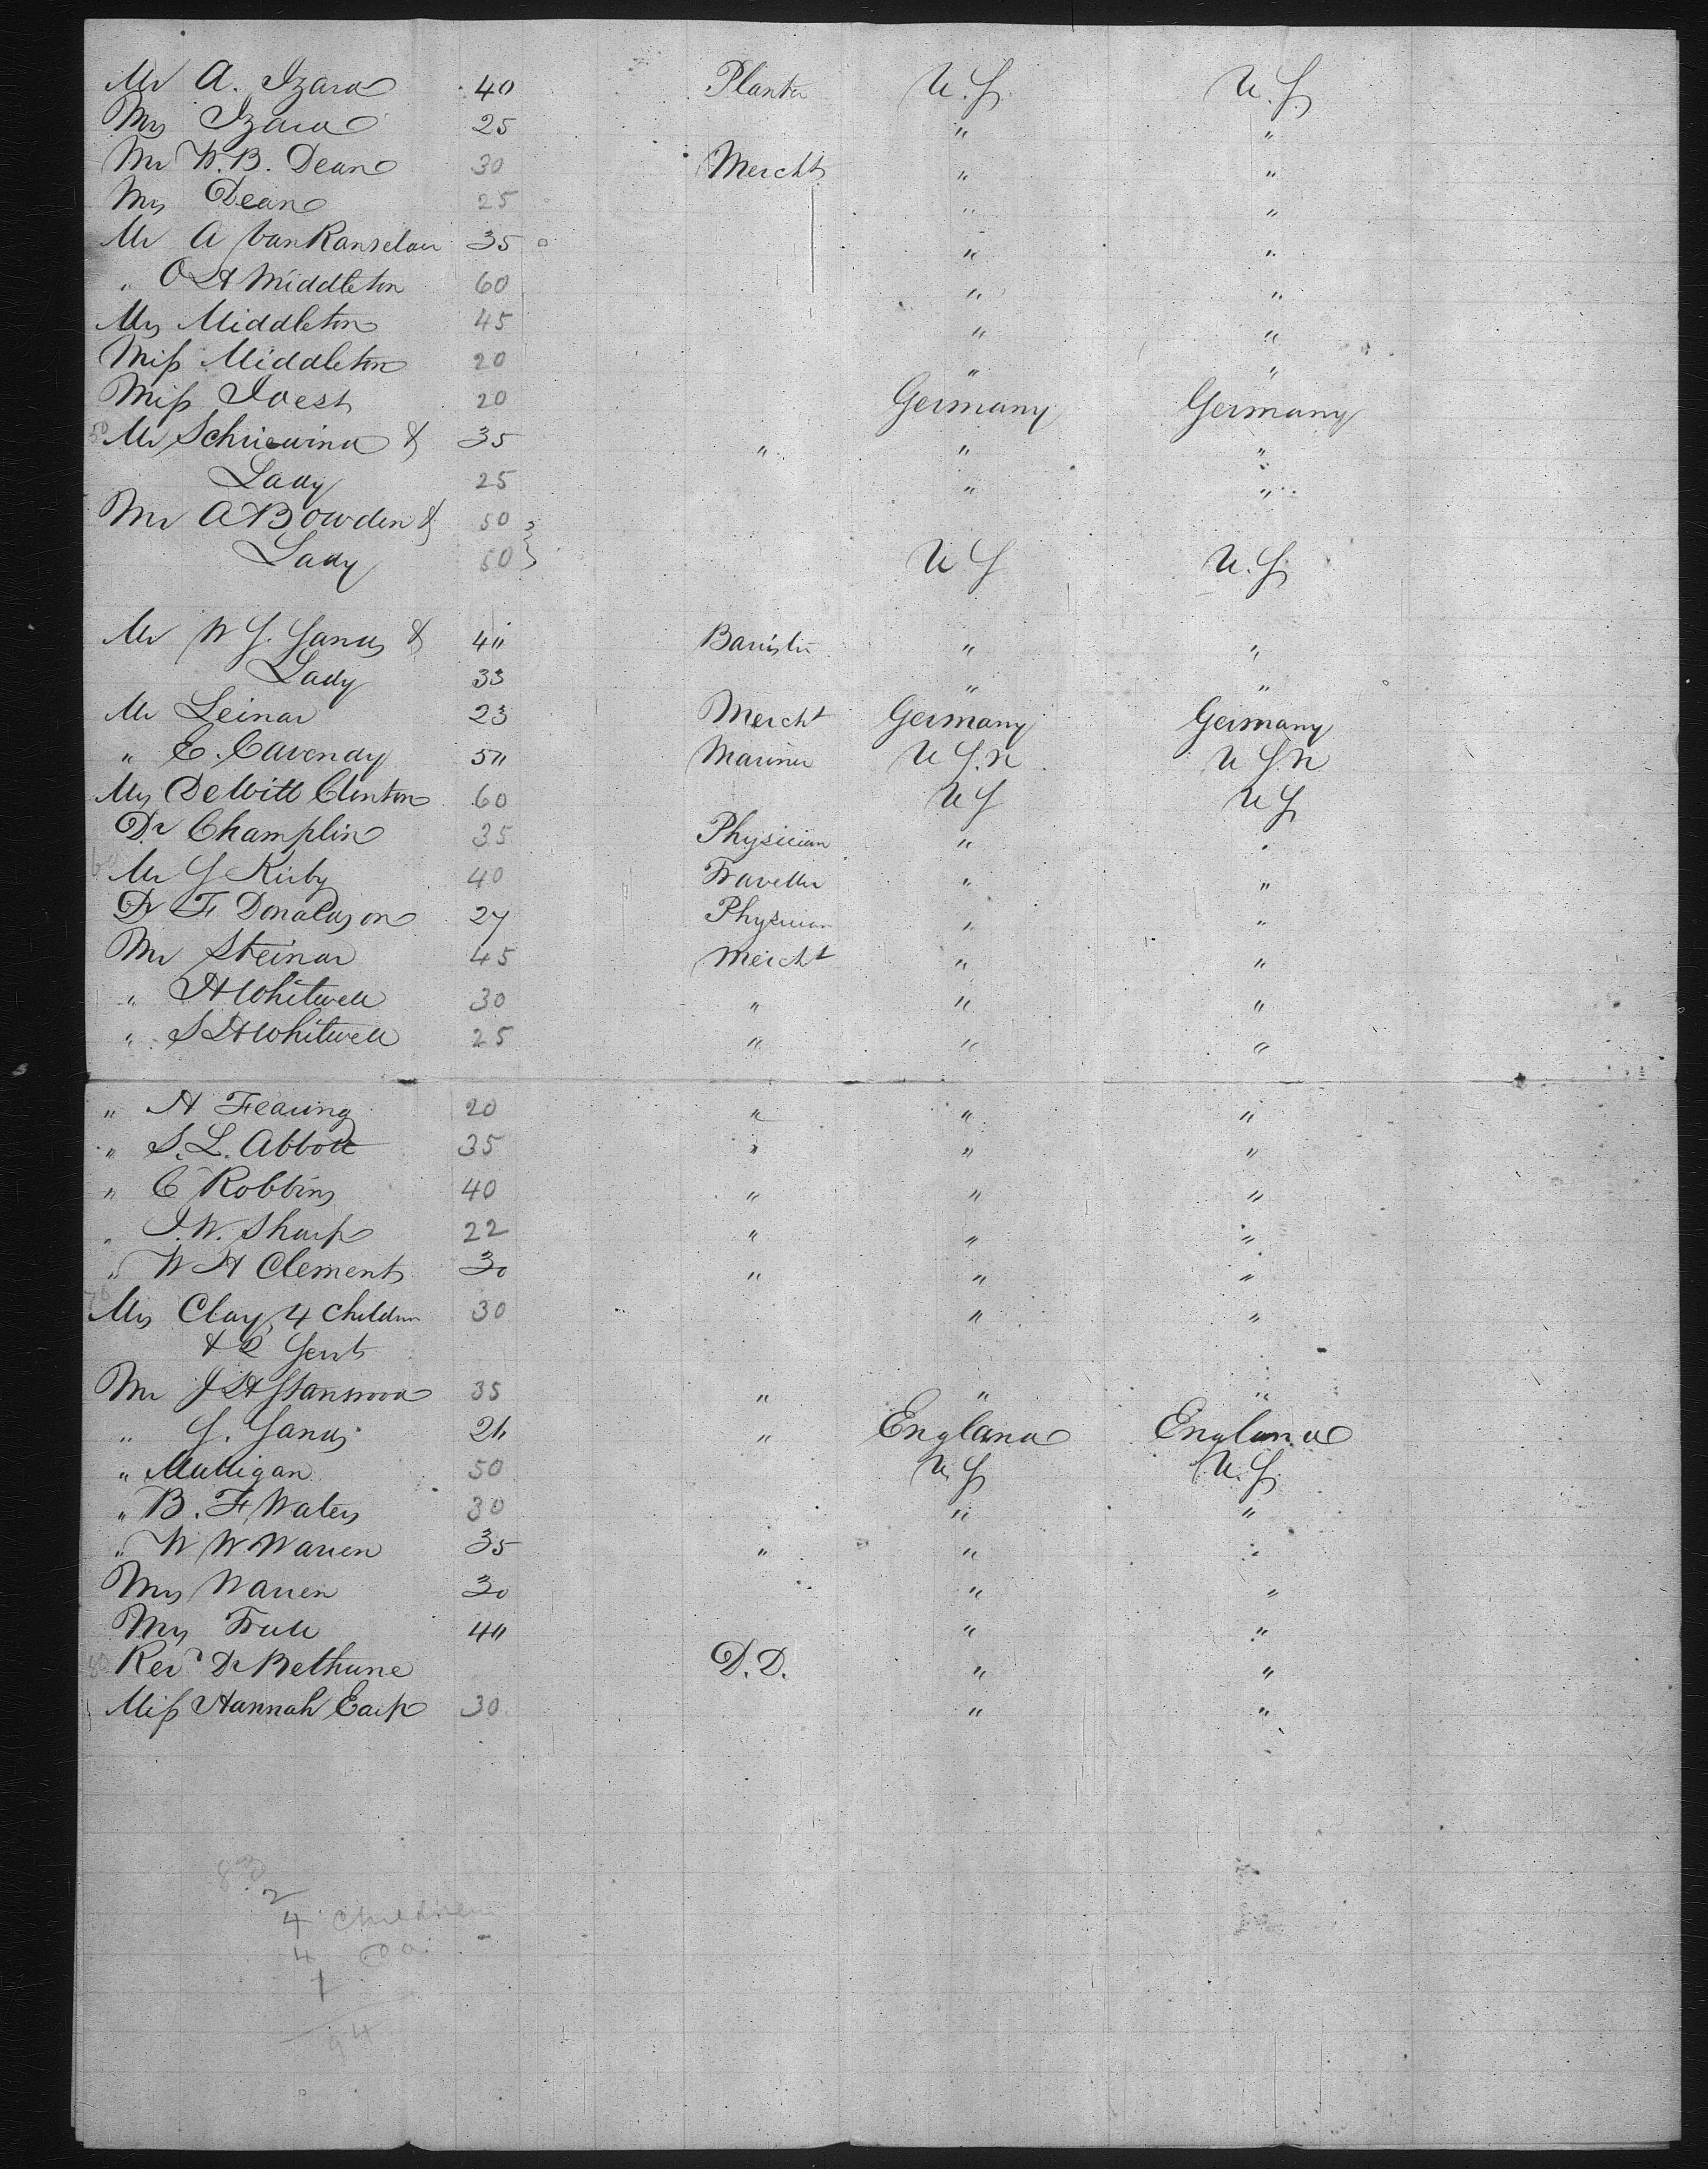 Mr A. Izard 40 Planter U.S. U.S.
Mrs Izard 25 " "
Mr W.B. Dean 30 Mercht " "
Mrs Dean 25 " "
Mr A Van Ranselaer 35 " "
" O H Middleton 60 " "
Mrs Middleton 45 " "
Miss Middleton 20 " "
Miss Joest 20 Germany Germany
50 Mr & 35 " " "
Lady 25 " "
Mr A Bowden & 50
Lady 50 U S U.S.
Mr W S. Sands & 4" Barister " "
Lady 33 " "
Mr Leinar 23 Mercht Germany Germany
" E. Cavendy 5" Mariner U S.N U S.N
Mrs DeWitt Clinton 60 U S U S
Dr Champlin 35 Physician " "
60 Mr S Kirby 40 Traveller " "
Dr F Donaldson 27 Physician " "
Mr Steinar 45 Mercht " "
" H Whitwell 30 " " "
" S H Whitwell 25 " " "
" H Fearing 20 " " "
" S. L. Abbott 35 " " "
" C Robbins 40 " " "
" J. W. Sharp 22 " " "
" W H Clements 30 " " "
70 Mrs Clay, 4 children 30 " "
& 2 Servts
Mr J H Stanwood 35 " " "
" S. Sands 2" " England England
" Mulligan 50 U S U.S.
" B. F. Waters 30 " "
" W W Warren 35 " " "
Mrs Warren 30 " "
Mrs True 4" " "
80 Revd Dr Bethune D.D. " "
1 Miss Hannah Earp 30 " "
2
4 children
4 do
1
94